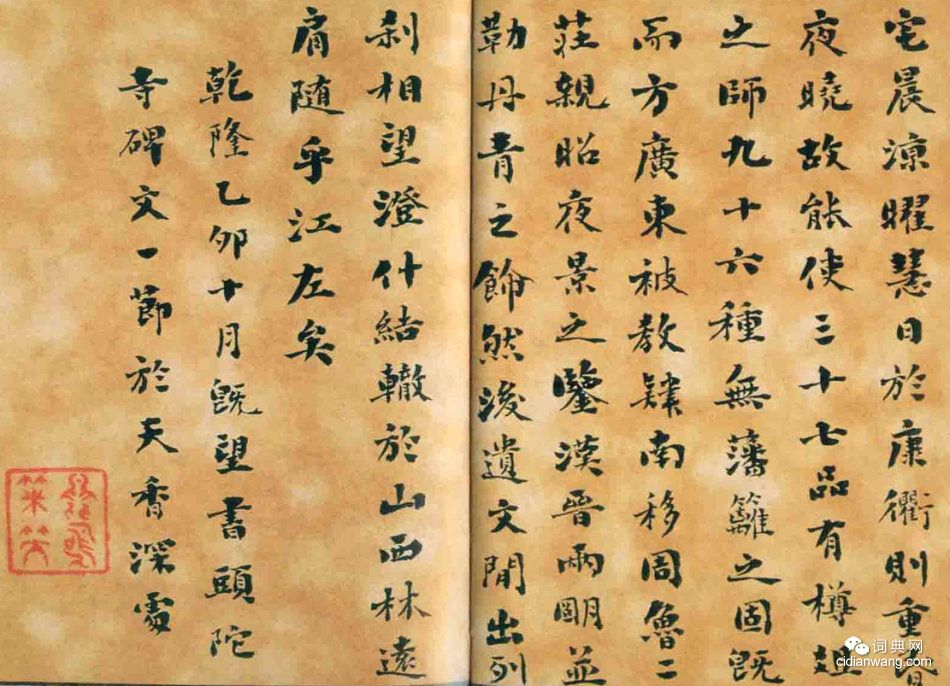 宅晨涼曜慧日於康衢則重昏
夜曉故能使三十七品有樽俎
之師九十六種無藩籬之固既
而方廣東被教肄南移周魯二
莊親昭夜景之鑒漢晉兩明並
勒丹青之飾然後遺文閒出列
刹相望澄什結轍於山西林遠
肩隨乎江左矣
乾隆乙卯十月既望書頭陀
寺碑文一節於天香深處
词典网
cidianwang.com